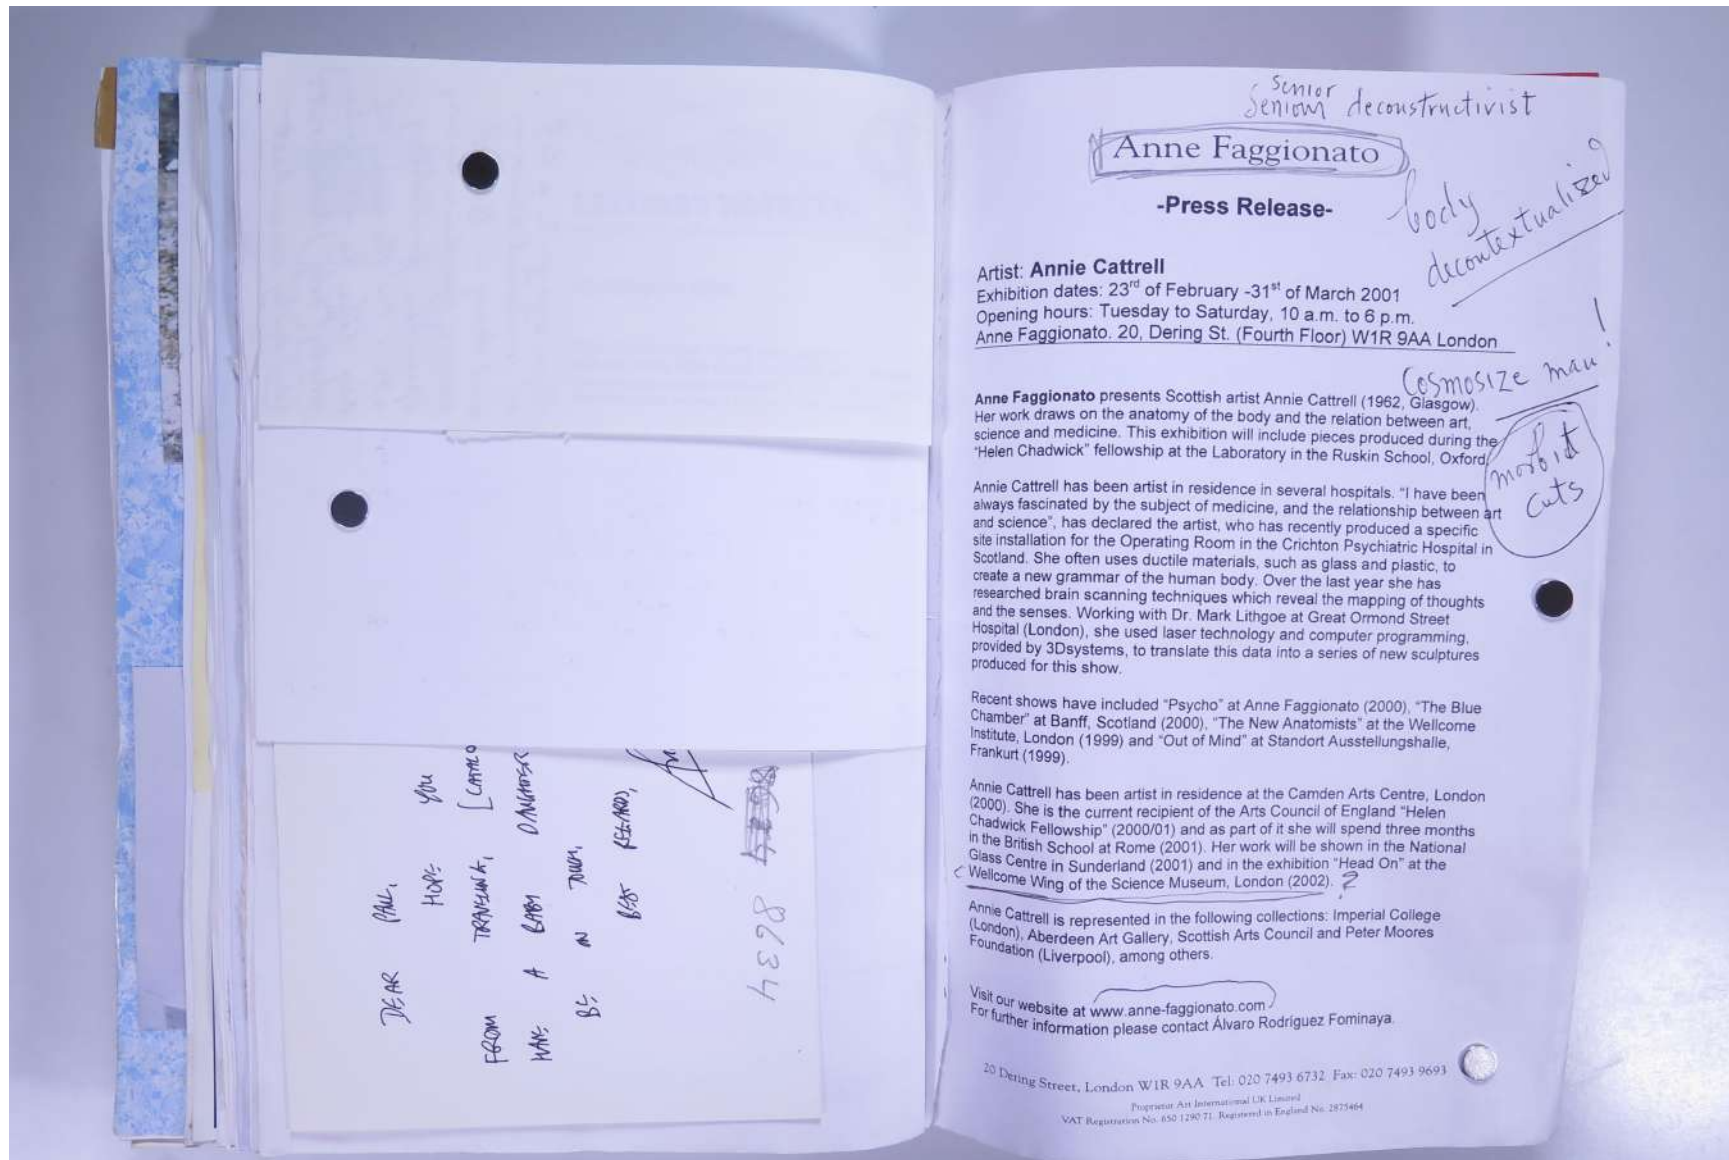 DEAR PAUL,
HOPE YOU
FROM TRAVELING,
HAVE A BABY DAUGHTER
BE IN TOUCH,
BEST REGARDS,
8634
senior
deconstructivist
Anne Faggionato
-Press Release-
body
decontextualized
Artist: Annie Cattrell
Exhibition dates: 23rd of February -31st of March 2001
Opening hours: Tuesday to Saturday, 10 a.m. to 6 p.m.
Anne Faggionato. 20, Dering St. (Fourth Floor) W1R 9AA London
Cosmosize man!
Anne Faggionato presents Scottish artist Annie Cattrell (1962, Glasgow).
Her work draws on the anatomy of the body and the relation between art,
science and medicine. This exhibition will include pieces produced during the
"Helen Chadwick" fellowship at the Laboratory in the Ruskin School, Oxford.
morbid
cuts
Annie Cattrell has been artist in residence in several hospitals. "I have been
always fascinated by the subject of medicine, and the relationship between art
and science", has declared the artist, who has recently produced a specific
site installation for the Operating Room in the Crichton Psychiatric Hospital in
Scotland. She often uses ductile materials, such as glass and plastic, to
create a new grammar of the human body. Over the last year she has
researched brain scanning techniques which reveal the mapping of thoughts
and the senses. Working with Dr. Mark Lithgoe at Great Ormond Street
Hospital (London), she used laser technology and computer programming,
provided by 3Dsystems, to translate this data into a series of new sculptures
produced for this show.
Recent shows have included "Psycho" at Anne Faggionato (2000), "The Blue
Chamber" at Banff, Scotland (2000), "The New Anatomists" at the Wellcome
Institute, London (1999) and "Out of Mind" at Standort Ausstellungshalle,
Frankurt (1999).
Annie Cattrell has been artist in residence at the Camden Arts Centre, London
(2000). She is the current recipient of the Arts Council of England "Helen
Chadwick Fellowship" (2000/01) and as part of it she will spend three months
in the British School at Rome (2001). Her work will be shown in the National
Glass Centre in Sunderland (2001) and in the exhibition "Head On" at the
Wellcome Wing of the Science Museum, London (2002). ?
Annie Cattrell is represented in the following collections: Imperial College
(London), Aberdeen Art Gallery, Scottish Arts Council and Peter Moores
Foundation (Liverpool), among others.
Visit our website at www.anne-faggionato.com
For further information please contact Álvaro Rodríguez Fominaya.
20 Dering Street, London W1R 9AA Tel: 020 7493 6732 Fax: 020 7493 9693
Proprietor Art International UK Limited
VAT Registration No. 650 1290 71. Registered in England No. 2875464